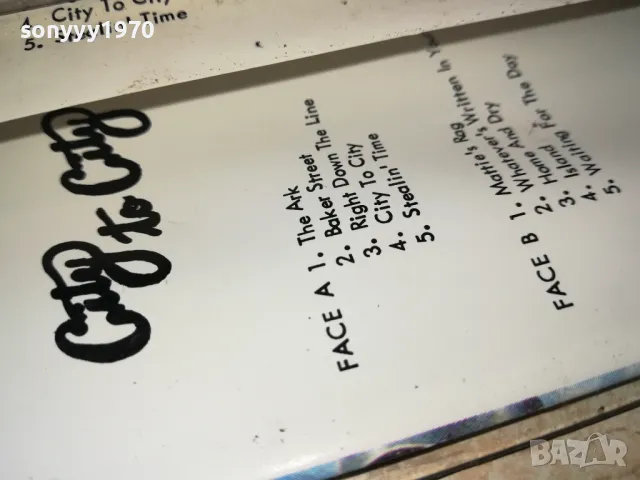 4. City To City
5. Stealin' Time
sonyyy1970
City to City
FACE A 1. The Ark
2. Baker Street
3. Right Down The Line
4. City To City
5. Stealin' Time
FACE B 1. Mattie's Rag
2. Whatever's Written In
3. Home And Dry
4. Island
5. Waiting For The Day
bazar